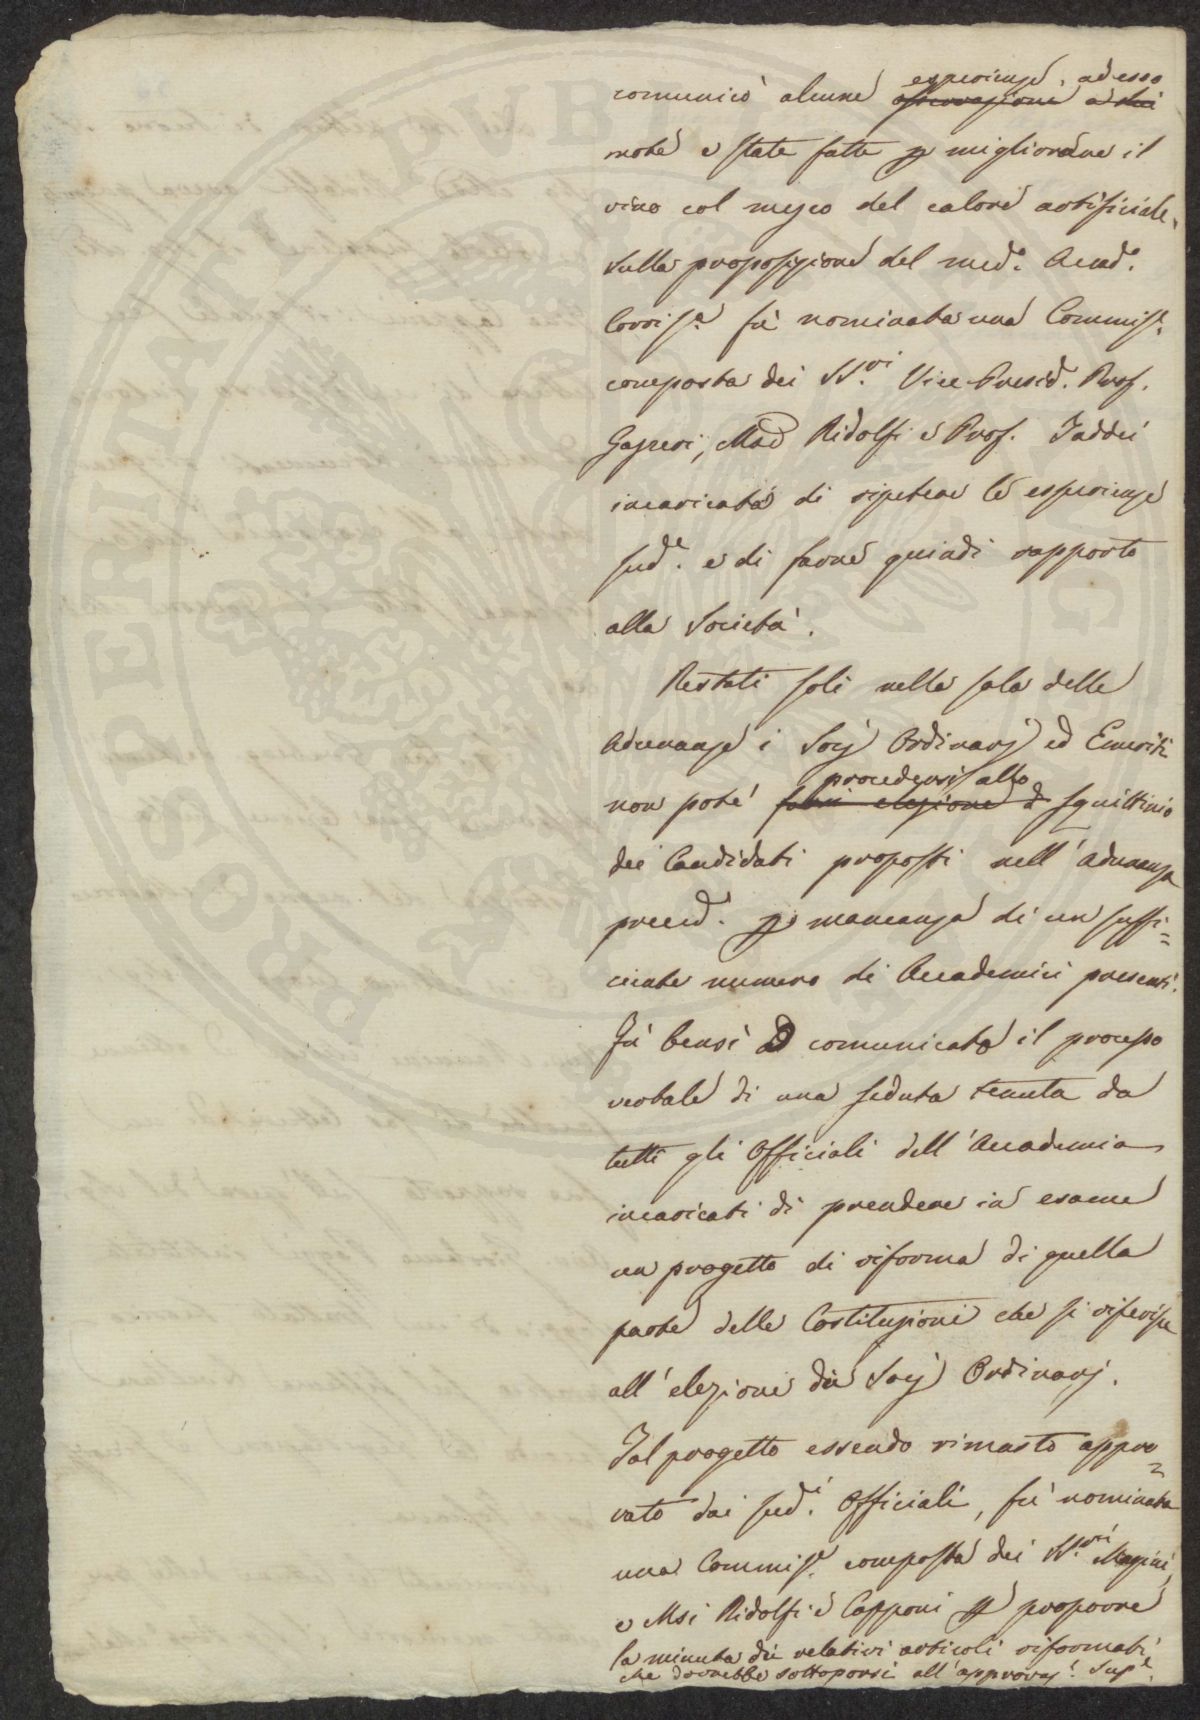 comunicò alcune esperienze, adesso
osservazioni a lui
note e state fatte p migliorare il
vino col mezzo del calore artificiale.
Sulla proposizione del med.o Accad.o
Corrisp.e fù nominata una Commiss.e
composta dei SS.ri Vice-Presid. Prof.
Gazzeri, Mse Ridolfi e Prof. Taddei
incaricata di ripetere le esperienze
sud.e e di farne quindi rapporto
alla Società.
Restati soli nella sala delle
Adunanze i Socj Ordinarj ed Emeriti
non potè procedersi allo
farsi elezione d squittinio
dei Candidati proposti nell'adunanza
preced. p mancanza di un suffi=
ciente numero di Accademici presenti.
Fù bensì comunicato il processo
verbale di una seduta tenuta da
tutti gli Officiali dell'Accademia
incaricati di prendere in esame
un progetto di riforma di quella
parte delle Costituzioni che si riferisce
all'elezione dei Socj Ordinarj.
Tal progetto essendo rimasto appro=
vato dai sud.i Officiali, fù nominata
una Commiss.e composta dei SS.ri
e Msi Ridolfi e Capponi p proporre
la minuta dei relativi articoli riformati
che dovrebbe sottoporsi all'approvaz.e Sup.e
PERIVLTATI PVBLICAE
PROSPERITATI AVGENDAE